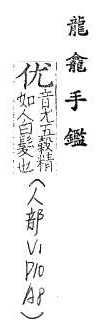 龍龕手鑑
优
音尤五穀精
如人白髮也
(人部V1
D10
A8)